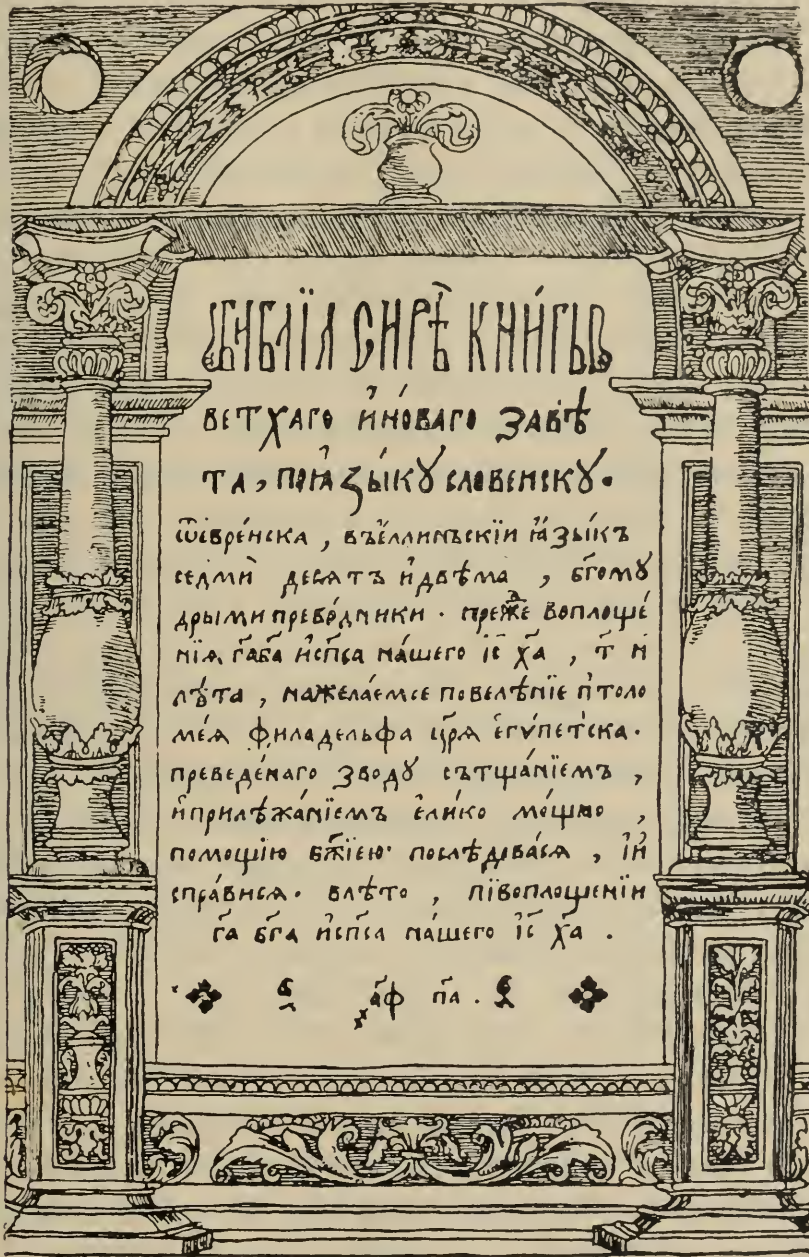 БИБЛІА СИРѢ КНИ́ГЫ
ВЕТХАГО И҆НО́ВАГО ЗАВѢ
ТА, ПОꙖЗЫ́КꙊ СЛОВЕНСКꙊ.
ѿеврѐнска, въе́ллинъскїи ꙗ҆зы́къ
седмѝ десѧтъ и҆двѣма, бг҃омꙋ
дрыми прево́дники. пре́ж҃е воплоще́
нїѧ г҃а б҃а и҆сп҃са на́шего і҆с҃ х҃а, т҃ и҆
лѣ́та, нажела́емое повелѣ́нїе птоло
ме́ѧ филадельфа ц҃рѧ є҆гѵ́петска.
преведе́наго зводꙋ сътща́нїемъ,
и҆прилѣжа́нїемъ є҆ли́ко мо́щно,
помощїю бж҃їею послѣ́дова́сѧ, і҆и҆
спра́висѧ. влѣ́то, пївоплоще́нїи
г҃а бг҃а и҆сп҃са на́шего і҆с҃ х҃а.
҂а҃ф п҃а.